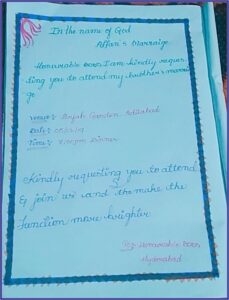 In the name of God
Affan's Marraige
Honourable boss, I am kindly reques
ting you to attend my brother's marri
ge
Venue:- Garden
Date:-
Time:- Dinner
Kindly requesting you to attend
& join us and the make the
function more brighter
Honourable boss
Hyderabad